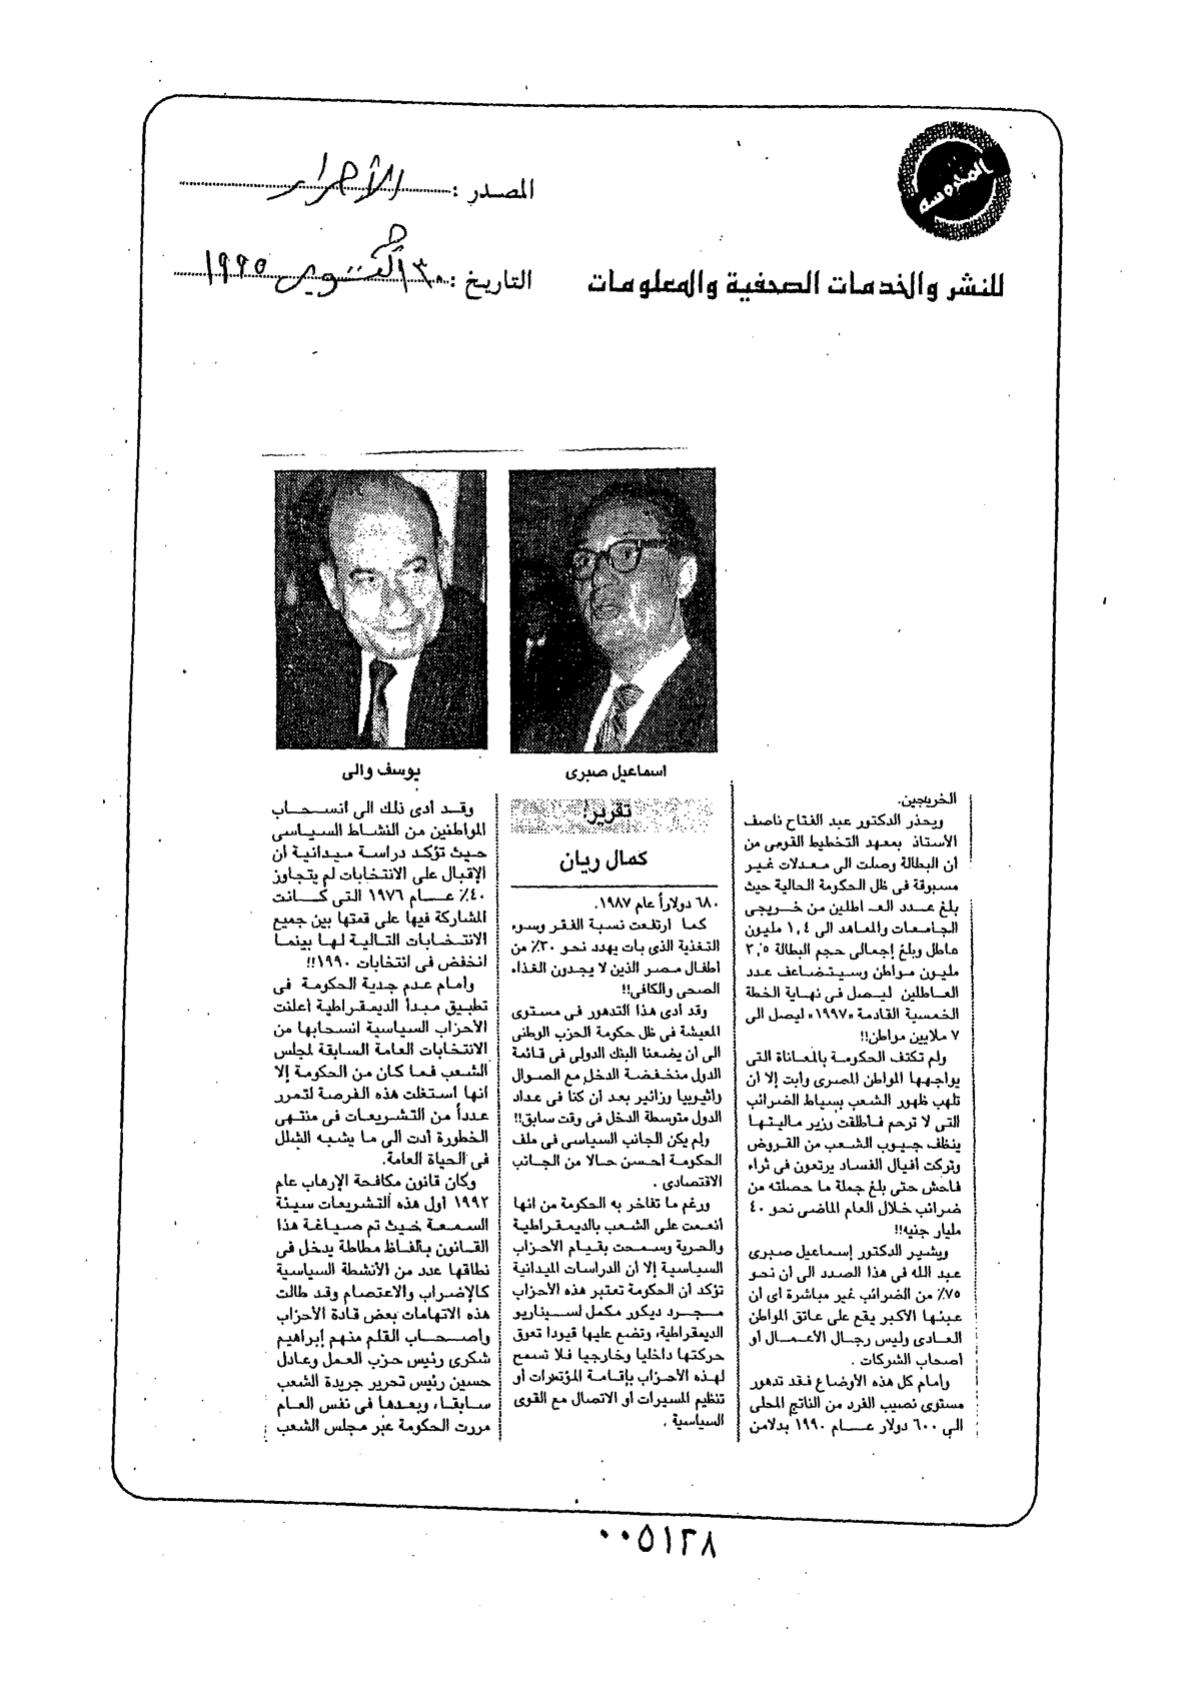 المحروسة
المصدر : الأحرار
للنشر والخدمات الصحفية والمعلومات
التاريخ : ٣٠ أكتوبر ١٩٩٥
اسماعيل صبرى
يوسف والى
الخريجين.
ويحذر الدكتور عبد الفتاح ناصف
الأستاذ بمعهد التخطيط القومى من
أن البطالة وصلت الى معدلات غير
مسبوقة فى ظل الحكومة الحالية حيث
بلغ عدد العاطلين من خريجى
الجامعات والمعاهد الى ١,٤ مليون
عاطل وبلغ إجمالى حجم البطالة ٣,٥
مليون مواطن وسيتضاعف عدد
العاطلين ليصل فى نهاية الخطة
الخمسية القادمة «١٩٩٧» ليصل الى
٧ ملايين مواطن!!
ولم تكتف الحكومة بالمعاناة التى
يواجهها المواطن المصرى وأبت إلا أن
تلهب ظهور الشعب بسياط الضرائب
التى لا ترحم فأطلقت وزير ماليتها
ينظف جيوب الشعب من القروض
وتركت أفيال الفساد يرتعون فى ثراء
فاحش حتى بلغ جملة ما حصلته من
ضرائب خلال العام الماضى نحو ٤٠
مليار جنيه!!
ويشير الدكتور إسماعيل صبرى
عبد الله فى هذا الصدد الى أن نحو
٧٥٪ من الضرائب غير مباشرة أى أن
عبئها الأكبر يقع على عاتق المواطن
العادى وليس رجال الأعمال أو
أصحاب الشركات .
وأمام كل هذه الأوضاع فقد تدهور
مستوى نصيب الفرد من الناتج المحلى
الى ٦٠٠ دولار عام ١٩٩٠ بدلا من
تقرير:
كمال ريان
٦٨٠ دولاراً عام ١٩٨٧.
كما ارتفعت نسبة الفقر وسوء
التغذية الذى بات يهدد نحو ٣٠٪ من
أطفال مصر الذين لا يجدون الغذاء
الصحى والكافى!!
وقد أدى هذا التدهور فى مستوى
المعيشة فى ظل حكومة الحزب الوطنى
الى أن يضعنا البنك الدولى فى قائمة
الدول منخفضة الدخل مع الصومال
واثيوبيا وزائير بعد أن كنا فى عداد
الدول متوسطة الدخل فى وقت سابق!!
ولم يكن الجانب السياسى فى ملف
الحكومة أحسن حالا من الجانب
الاقتصادى .
ورغم ما تفاخر به الحكومة من انها
أنعمت على الشعب بالديمقراطية
والحرية وسمحت بقيام الأحزاب
السياسية إلا أن الدراسات الميدانية
تؤكد أن الحكومة تعتبر هذه الأحزاب
مجرد ديكور مكمل لسيناريو
الديمقراطية، وتضع عليها قيودا تعوق
حركتها داخليا وخارجيا فلا تسمح
لهذه الأحزاب بإقامة المؤتمرات أو
تنظيم المسيرات أو الاتصال مع القوى
السياسية .
وقد أدى ذلك الى انسحاب
المواطنين من النشاط السياسى
حيث تؤكد دراسة ميدانية أن
الإقبال على الانتخابات لم يتجاوز
٤٠٪ عام ١٩٧٦ التى كانت
المشاركة فيها على قمتها بين جميع
الانتخابات التالية لها بينما
انخفض فى انتخابات ١٩٩٠!!
وأمام عدم جدية الحكومة فى
تطبيق مبدأ الديمقراطية أعلنت
الأحزاب السياسية انسحابها من
الانتخابات العامة السابقة لمجلس
الشعب فما كان من الحكومة إلا
أنها استغلت هذه الفرصة لتمرر
عدداً من التشريعات فى منتهى
الخطورة أدت الى ما يشبه الشلل
فى الحياة العامة.
وكان قانون مكافحة الإرهاب عام
١٩٩٢ أول هذه التشريعات سيئة
السمعة حيث تم صياغة هذا
القانون بألفاظ مطاطة يدخل فى
نطاقها عدد من الأنشطة السياسية
كالإضراب والاعتصام وقد طالت
هذه الاتهامات بعض قادة الأحزاب
وأصحاب القلم منهم إبراهيم
شكرى رئيس حزب العمل وعادل
حسين رئيس تحرير جريدة الشعب
سابقا، وبعدها فى نفس العام
مررت الحكومة عبر مجلس الشعب
٠٠٥١٢٨